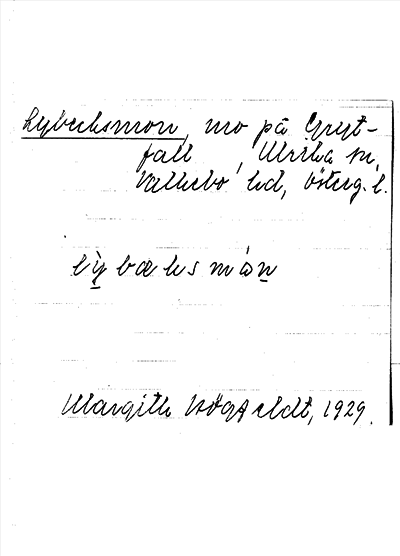 Lybecksmon, mo på Gryt-
fall, Ulrika sn,
Valkebo hd, Österg. l.
lỳbæksmòn
Margith Högfeldt, 1929.